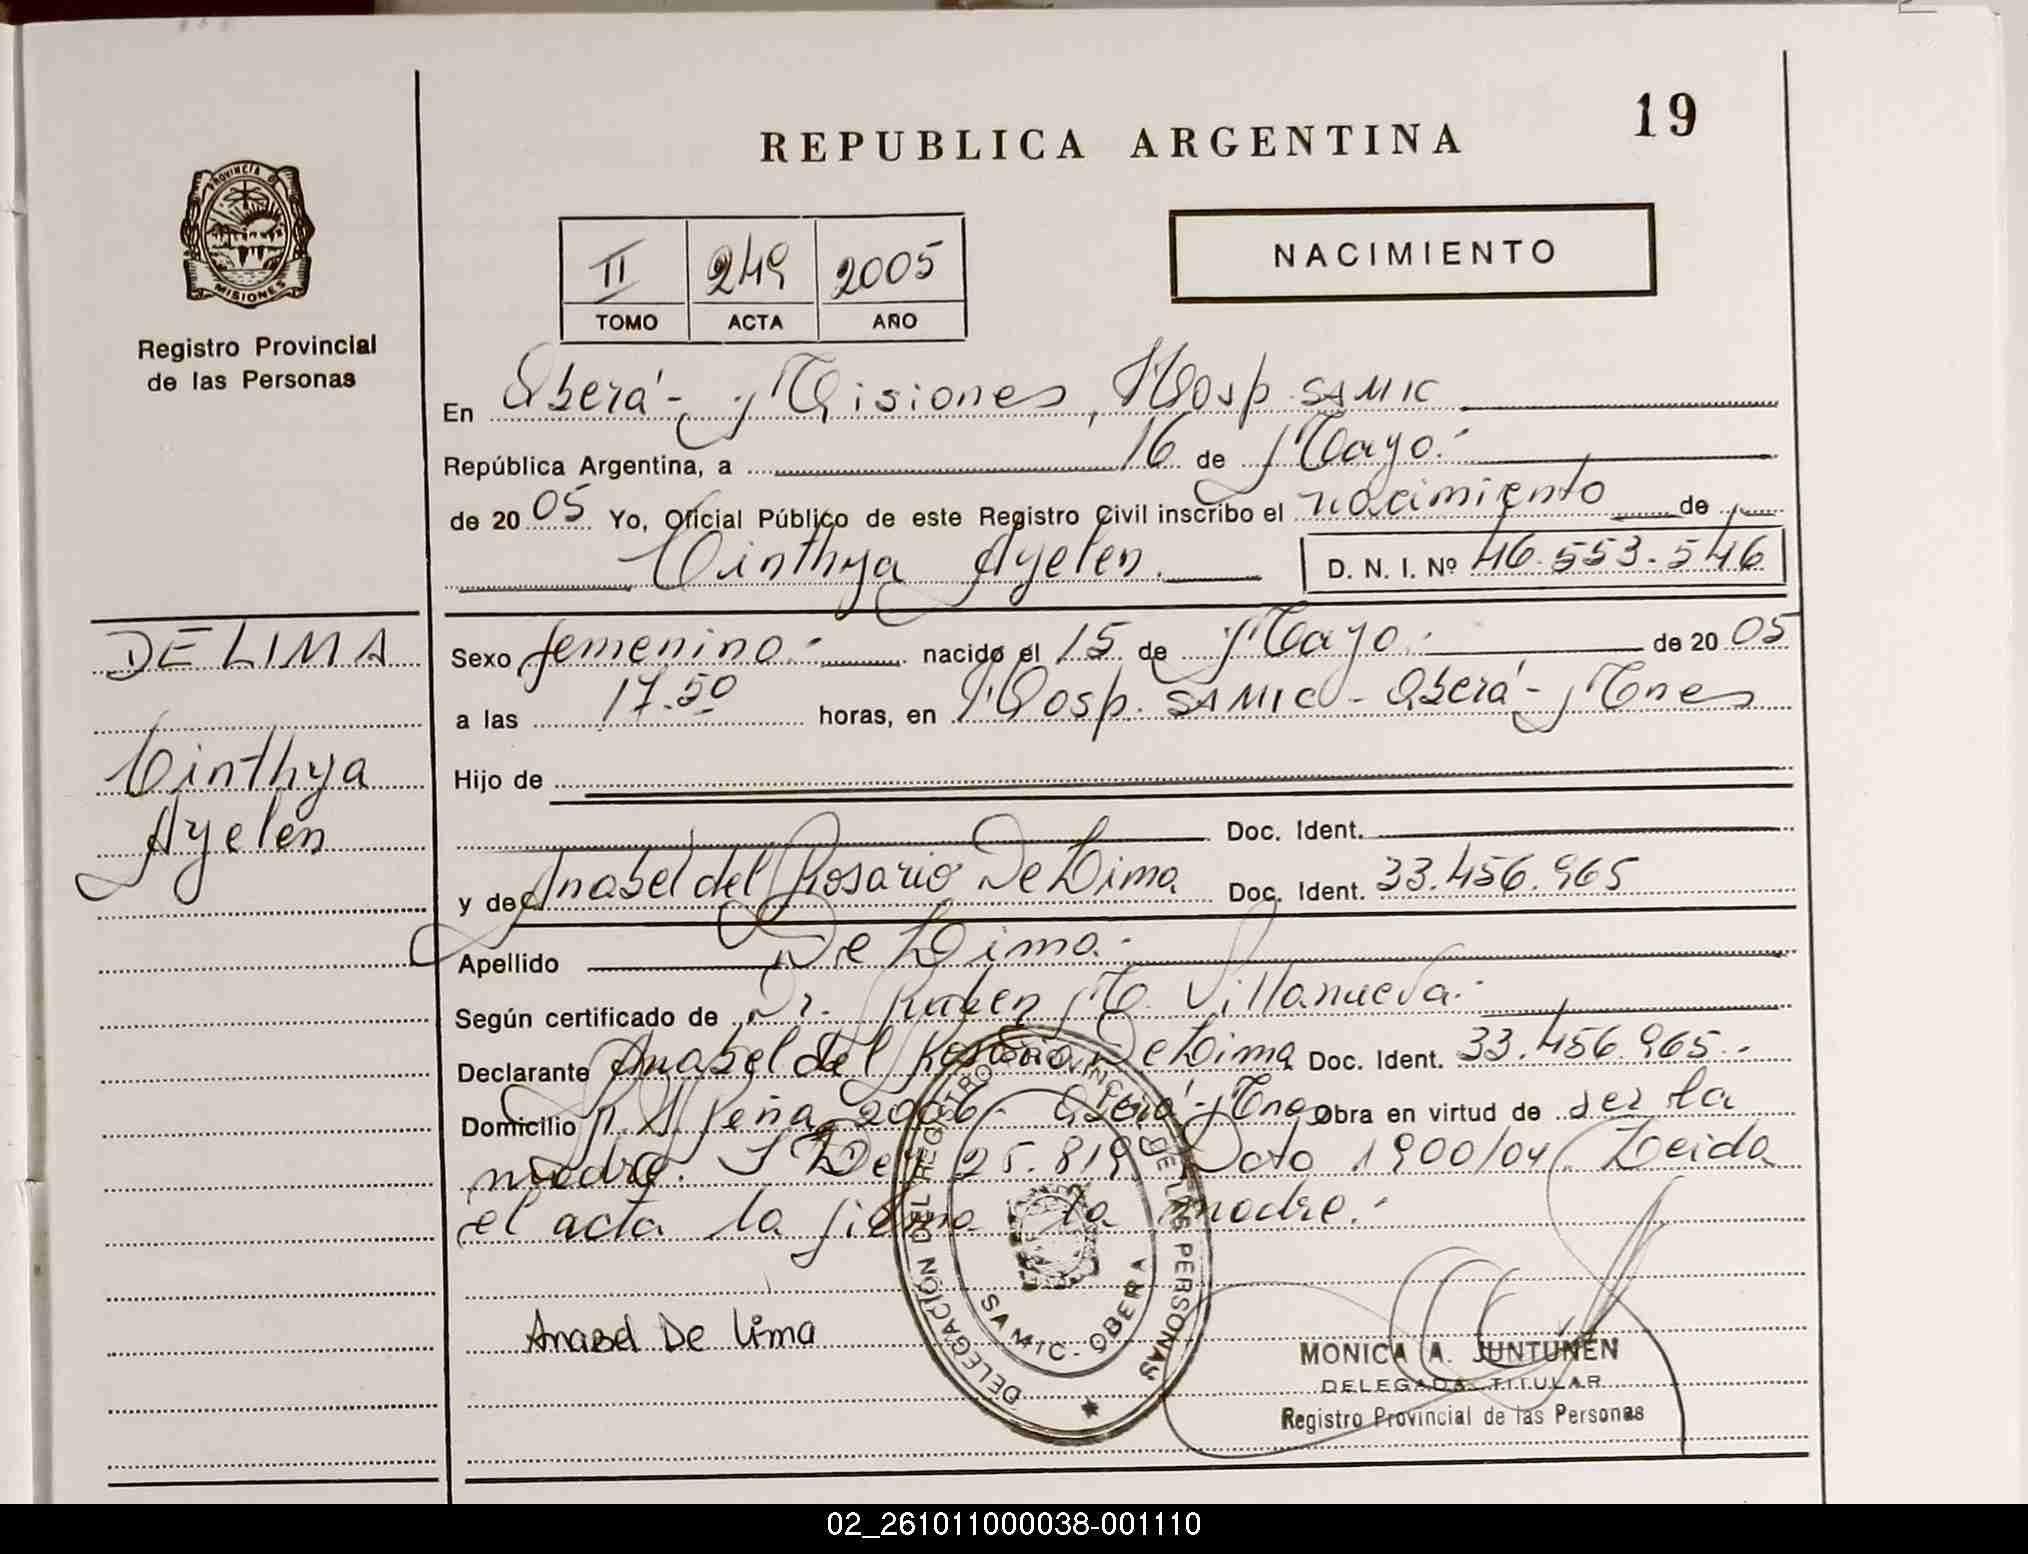 19
REPUBLICA ARGENTINA
PROVINCIA DE
MISIONES
Registro Provincial
de las Personas
NACIMIENTO
II 249 2005
TOMO ACTA AÑO
En Oberá - Misiones, Hosp. SAMIC
República Argentina, a 16 de Mayo.-
de 2005 Yo, Oficial Público de este Registro Civil inscribo el nacimiento de
Cinthya Ayelen. D. N. I. Nº 46.553.546
DE LIMA
Cinthya
Ayelen
Sexo femenino.- nacido el 15 de Mayo.- de 2005
a las 17.50 horas, en Hosp. SAMIC - Oberá - Mnes
Hijo de
Doc. Ident.
y de Anabel del Rosario De Lima Doc. Ident. 33.456.965
Apellido De Lima.-
Según certificado de Dr. Ruben M. Villanueva.-
Declarante Anabel del Rosario De Lima Doc. Ident. 33.456.965.-
Domicilio R. S. Peña 2006 - Oberá - Mnes Obra en virtud de ser la
madre. 25.819 Dcto 1900/04. Leida
el acta la firma la madre.-
Anabel De Lima
DELEGACIÓN DEL REGISTRO PROVINCIAL DE LAS PERSONAS
SAMIC - OBERA
MONICA A. JUNTUNEN
DELEGADA TITULAR
Registro Provincial de las Personas
02_261011000038-001110